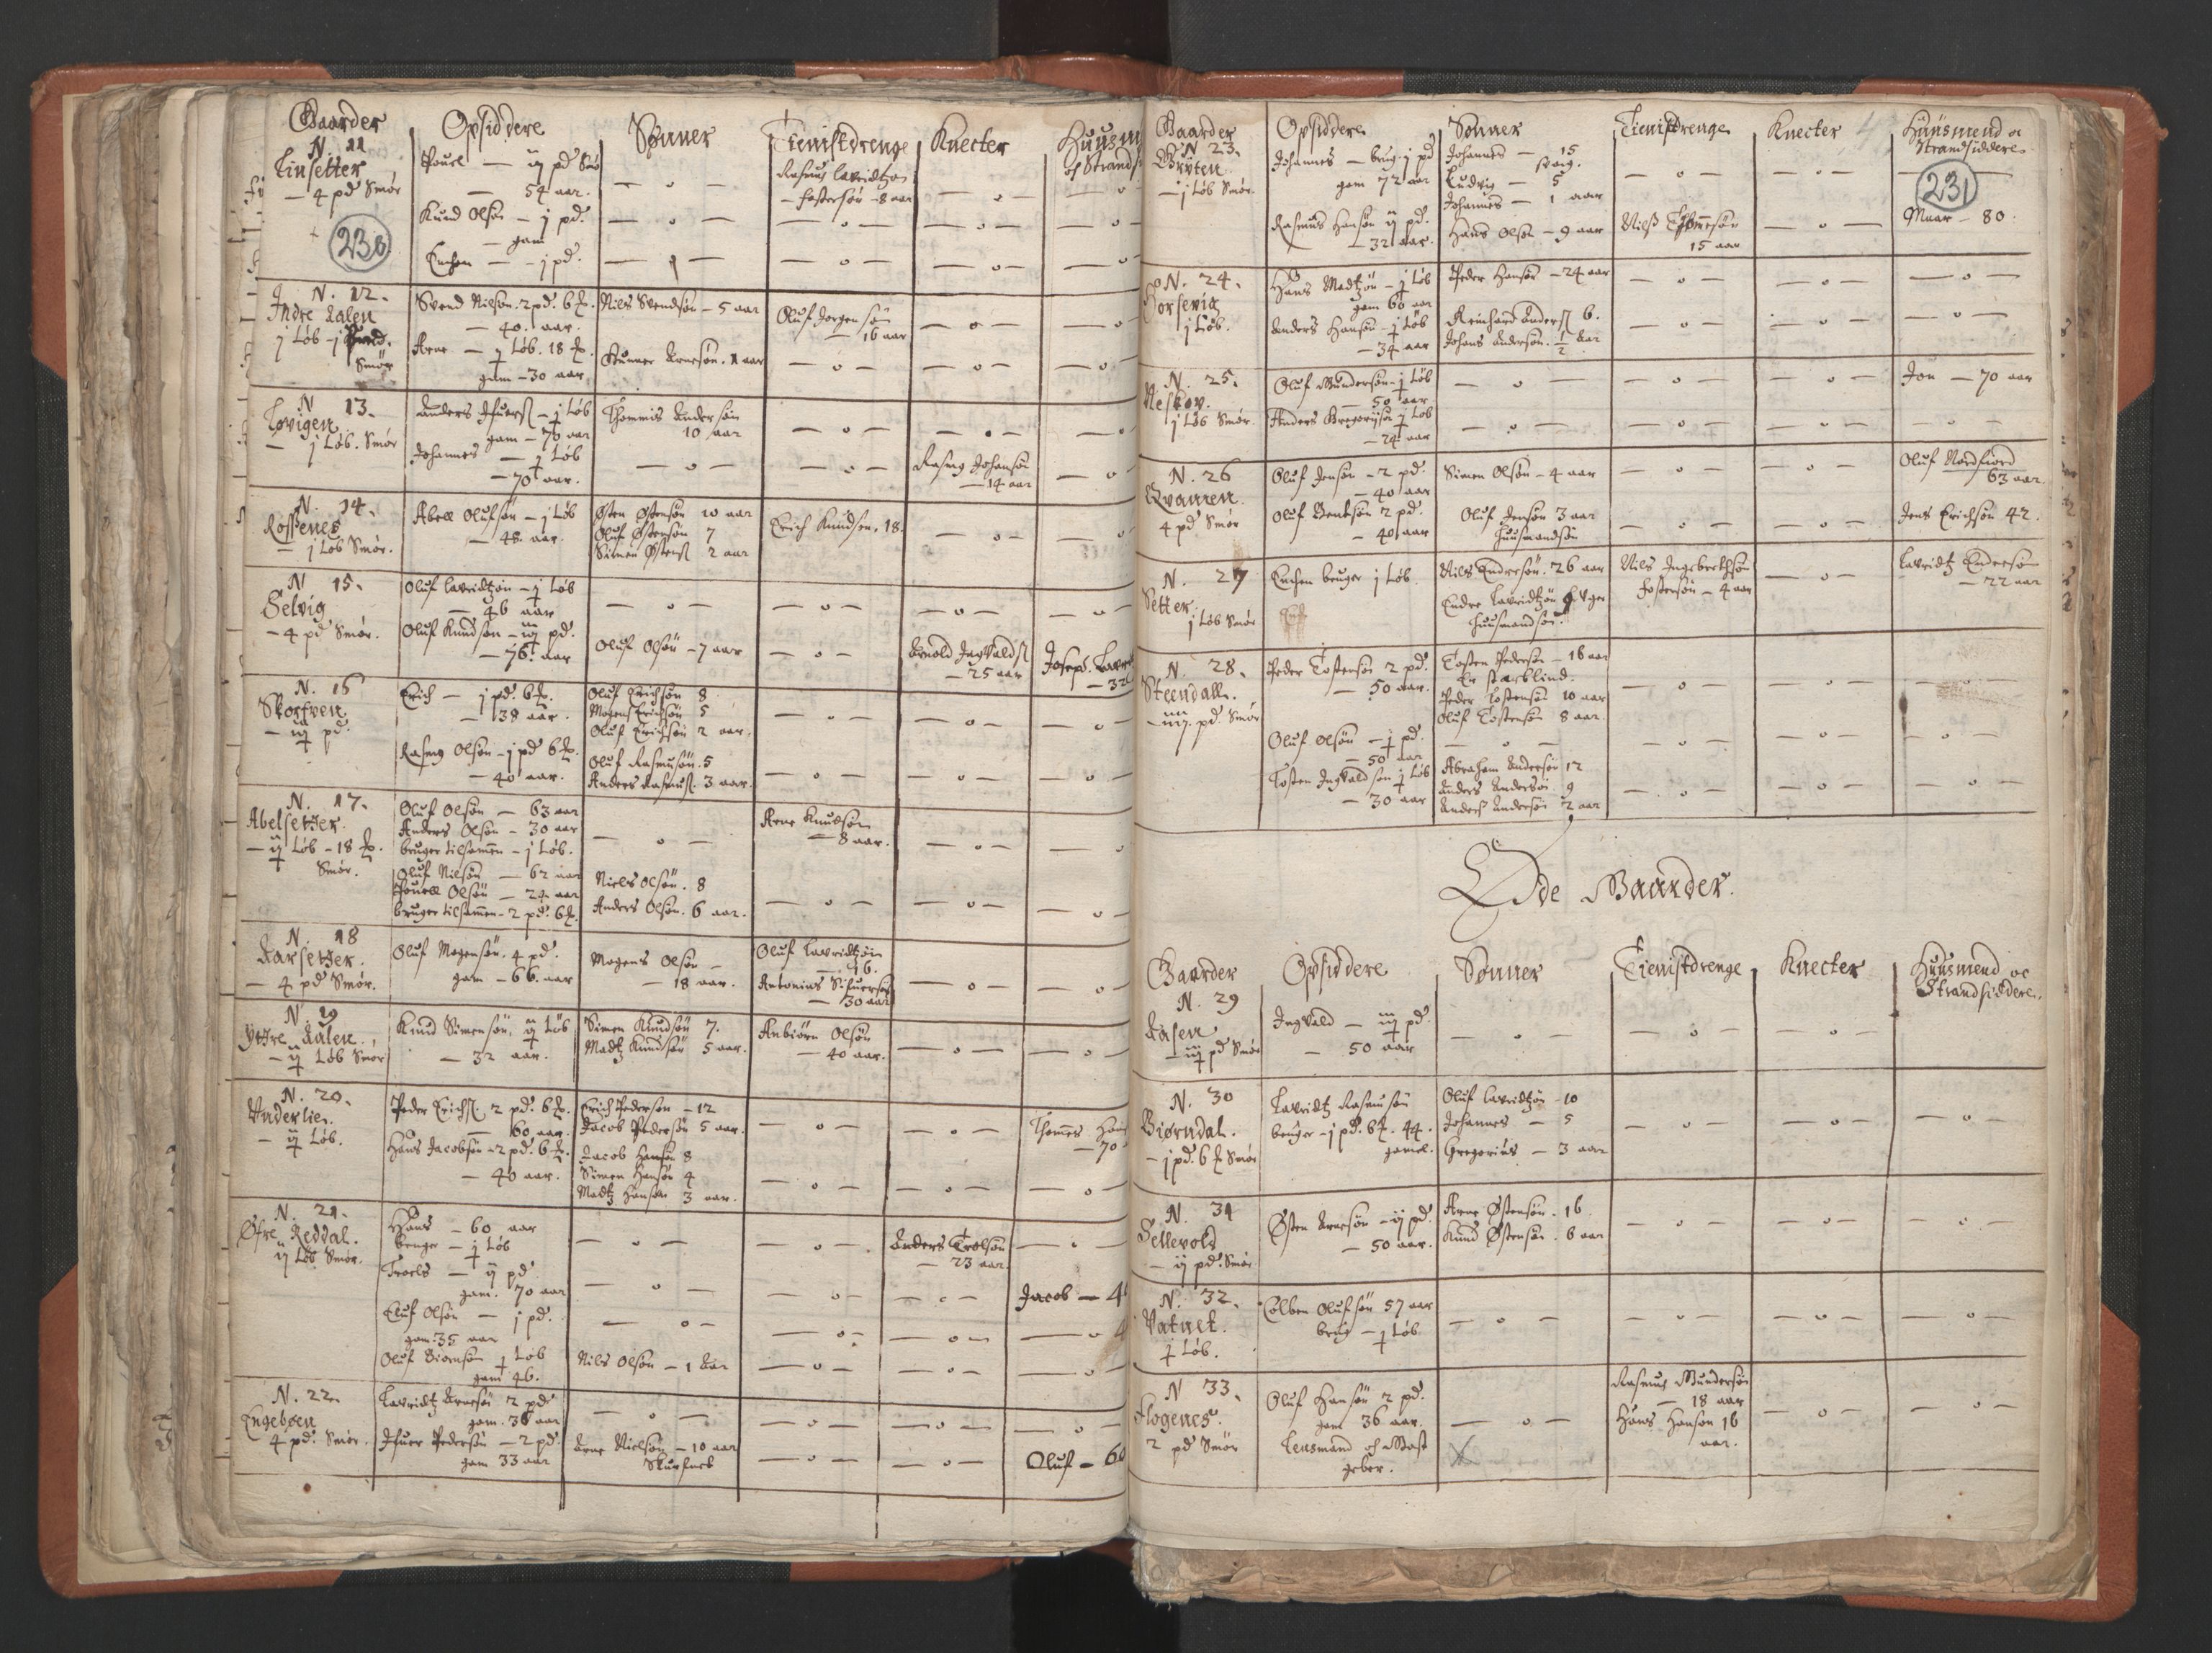 Gaarder
Opsiddere
Sønner
Tienistdrenge
Knecter
N. 11
Tinsetter
– 4 pd Smør
230
Pouel — iij pd Smø
— 54 aar.
Knud Olsøn — j pd.
— gam
Enchen — j pd.
Rasmus Lavridtzøn
– fostersøn – 8 aar
N. 12.
Indre Dalen
j Løb – j Pund.
Smør
Svend Nilsøn. 2 pd. 6
— 40. aar.
Arne — Løb. 18
gam – 30 aar
Nils Svendsøn – 5 aar
Gunner Arnesøn. 1 aar
Oluf Jørgensøn
— 16 aar
N 13.
Løvigen
— j Løb. Smør
Anders — Løb
gam – 76 aar
Johannes — Løb
— 70 aar.
Thommis Andersøn
10 aar
Rasmus Johansøn
— 14 aar
N. 14.
Rossenes
— j Løb Smør.
Abell Olufsøn – j Løb
— 48. aar.
Østen Østensøn 10 aar
Oluf Østensøn 7
Simen Østens 2 aar
Erich Knudsøn. 18.
N 15.
Selvig
– 4 pd Smør.
Oluf Lavridtzøn – Løb
— 46 aar
Oluf Knudsøn – iij pd.
— 76. aar
Oluf Olsøn – 7 aar
Arnold Ingvalds
— 25 aar
Josep. Lavri
— 32
N. 16
Skorfven
– iij pd.
Erich — j pd. 6
— 38 aar.
Rasmus Olsøn – j pd 6
— 40 aar.
Oluf Erichsøn 8
Mogens Erichsøn 5
Oluf Erichsøn 2 aar.
Oluf Rasmusøn. 5
Anders Rasmus. 3 aar.
N. 17.
Abelsetter
– Løb – 18
Smør.
Oluf Olsøn — 63 aar
Anders Olsøn – 30 aar
bruger tilsamen – j Løb.
Oluf Nilsøn — 62 aar
Pouell Olsøn — 24 aar
bruger tilsamen – 2 pd. 6
Niels Olsøn. 8
Anders Olsøn. 6 aar.
Arne Knudsøn
— 8 aar.
N. 18
Aarsetter.
— 4 pd Smør.
Oluf Mogensøn. 4 pd.
gam – 66. aar
Mogens Olsøn –
— 18 aar.
Oluf Lavridtzøn
— 16.
Antonius
— 30 aar
N. 19
Yttre Dalen.
– Løb Smør
Knud Simensøn. Løb
— 32 aar.
Simen Knudsøn 7.
Madtz Knudsøn 5 aar.
Anbiørn Olsøn
— 40 aar.
N. 20.
Underlien.
– Løb.
Peder Erichs 2 pd. 6
60 aar
Hans Jacobsøn – 2 pd. 6
— 40 aar.
Erich Pedersøn – 12
Jacob Pedersøn 5 aar.
Jacob Hansøn 8
Simen Hansøn 4
Madtz Hansøn 3 aar.
Thomes Hans
— 70
N. 21.
Øfre Reddal.
ij Løb Smør.
Hans – 60 aar
bruger – Løb
Troels — ij pd
gam. 70 aar
Eluf Olsøn — j pd.
gam. 35 aar
Oluf Biørnsøn Løb
gam 46.
Nils Olsøn – 1 Aar
Anders Trolsøn
— 23 aar.
Jacob — 4
N. 22.
Engebøen
4 pd. Smør.
Lavridtz Arnesøn 2 pd
gam. 36 aar
Ifuer Pedersøn – 2 pd.
gam 33 aar
Arne Nielsøn – 10 aar
Oluf – 60
Gaarder
Opsiddere
Sønner
Tienistdrenge
Knecter
Huusmend oc
Strandsiddere
231
N 23.
Gryten
– j Løb Smør.
Johannes — brug. j pd
gam 72 aar
Rasmus Hansøn ij pd.
— 32 aar.
Johannes — 15
Ludvig — 5
Johannes — 1 aar
Hans Olsøn – 9 aar
15 aar
– 80.
N. 24.
Horsevig
j Løb.
Hans Madtzøn – Løb
gam 60 aar
Anders Hansøn – Løb
— 34 aar
Peder Hansøn – 24 aar
Reinhard Anders 6.
Johans Andersøn. 1/2 Aar
N. 25.
Neskov.
j Løb Smør.
Oluf Gundersøn – Løb
50 aar
Anders Gregoriisøn Løb
— 24 aar
Jon — 70 aar
N. 26
Qvamen
4 pd Smør
Oluf Jensøn – 2 pd.
— 40 aar
Oluf Bentsøn 2 pd.
— 40 aar
Simen Olsøn – 4 aar
Oluf Jensøn 3 aar
huusmandsøn
Oluf Nordfiord
63 aar.
Jens Erichsøn 42.
N. 27
Setter
j Løb Smør
Enchen bruger j Løb.
Nils Endresøn. 26 aar
Endre Lavridtzøn
huusmandsøn
Nils Ingebrechtsøn
fostersøn – 4 aar
Lavridtz Endresøn
— 22 aar
N. 28.
Steendall.
– iiij. pd. Smør
Peder Tostensøn 2 pd.
— 50 aar.
Oluf Olsøn — j pd.
— 50 aar
Tosten Ingvaldsøn Løb
— 30 aar
Tosten Pedersøn – 16 aar
Er starblind.
Peder Tostensøn 10 aar
Oluf Tostensøn 8 aar
Abraham Andersøn 12
Anders Andersøn 9
Anders Andersøn 2 aar
Øde Gaarder.
Gaarder
Opsiddere
Sønner
Tienistdrenge
Knecter
Huusmend oc
Strandsiddere.
N. 29
Aasen
– iij pd Smør
Ingvald — iij pd.
— 50 aar
N. 30
Biørndal.
– j pd. 6 Smør
Lavridtz Rasmusøn
bruger – j pd. 6 . 44.
gamel.
Oluf Lavridtzøn – 10
Johannes — 5
Gregorius — 3 aar
N. 31
Sellevold
– ij pd. Smør
Østen Arnesøn – ij pd.
— 50 aar.
Arne Østensøn. 16
Knud Østensøn. 6 aar
N. 32.
Vatnet.
Løb.
Colben Olufsøn 57 aar
brug — Løb
N 33.
Flogenes.
2 pd Smør
Oluf Hansøn 2 pd.
gam 36 aar.
Lensmand och Giest
geber.
Rasmus Gundersøn
— 18 aar
Hans Hansøn 16
aar.